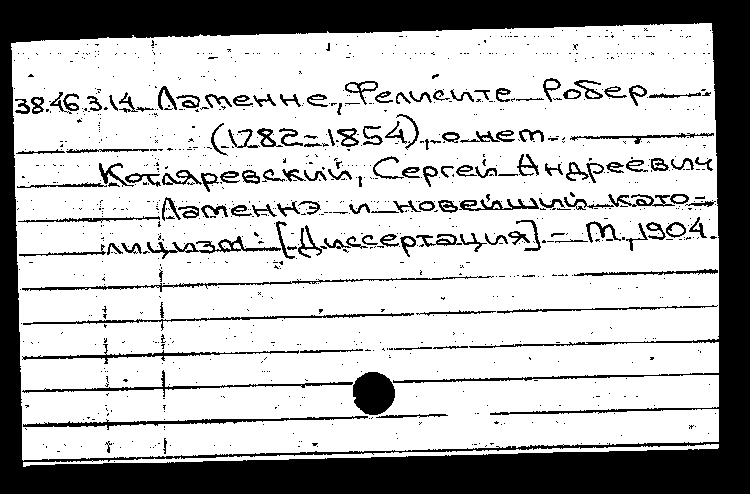 38.46.3.14 Ламенне, Фелисите Робер
(1782-1854), о нем.
Котляревский, Сергей Андреевич
Ламеннэ и новейший като-
лицизм: [Диссертация] - М., 1904.